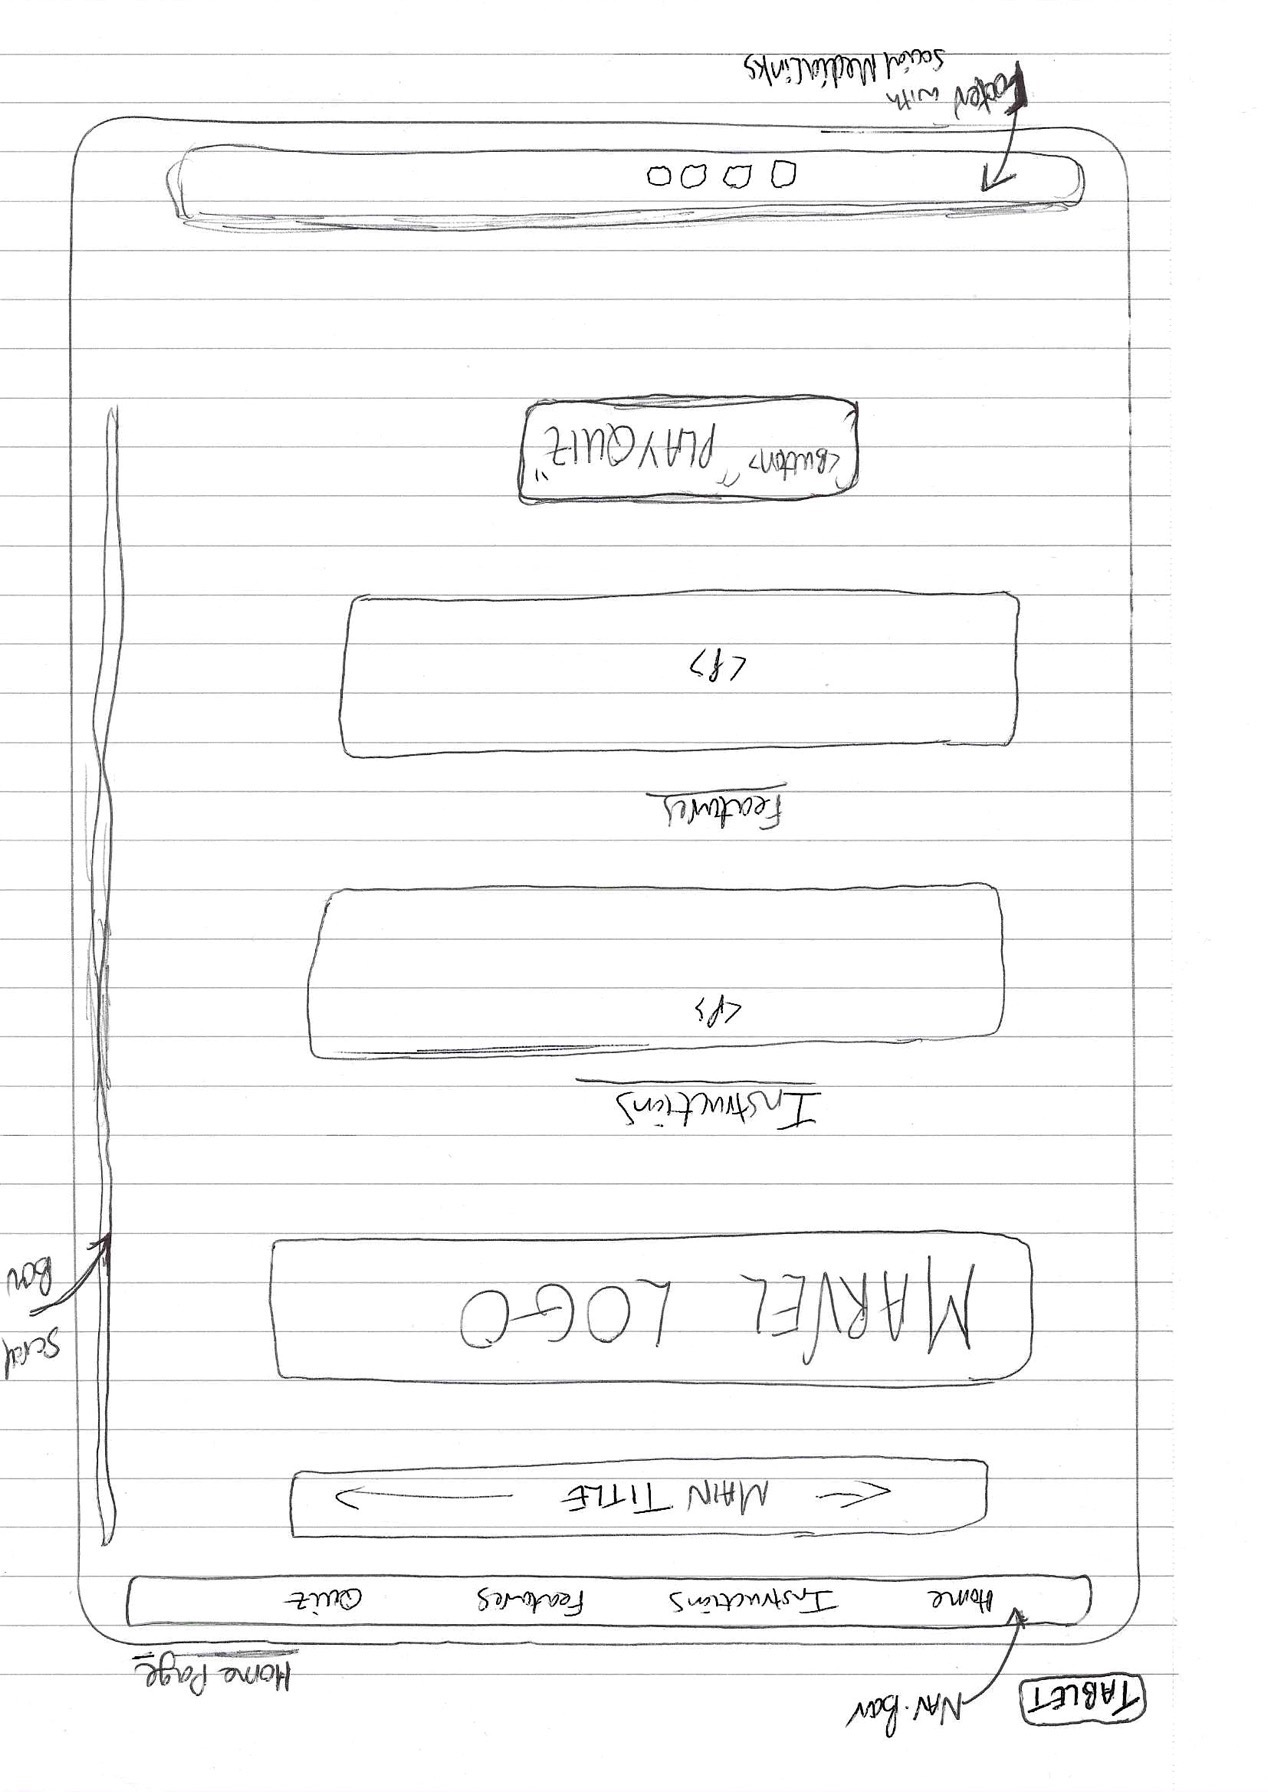 TABLET
NAV.Bar
Home Page
Home Instructions Features Quiz
MAIN TITLE
MARVEL LOGO
Scroll
Bar
Instructions
<P>
Features
<P>
<Button> "PLAY QUIZ"
Footer with
Social Media Links